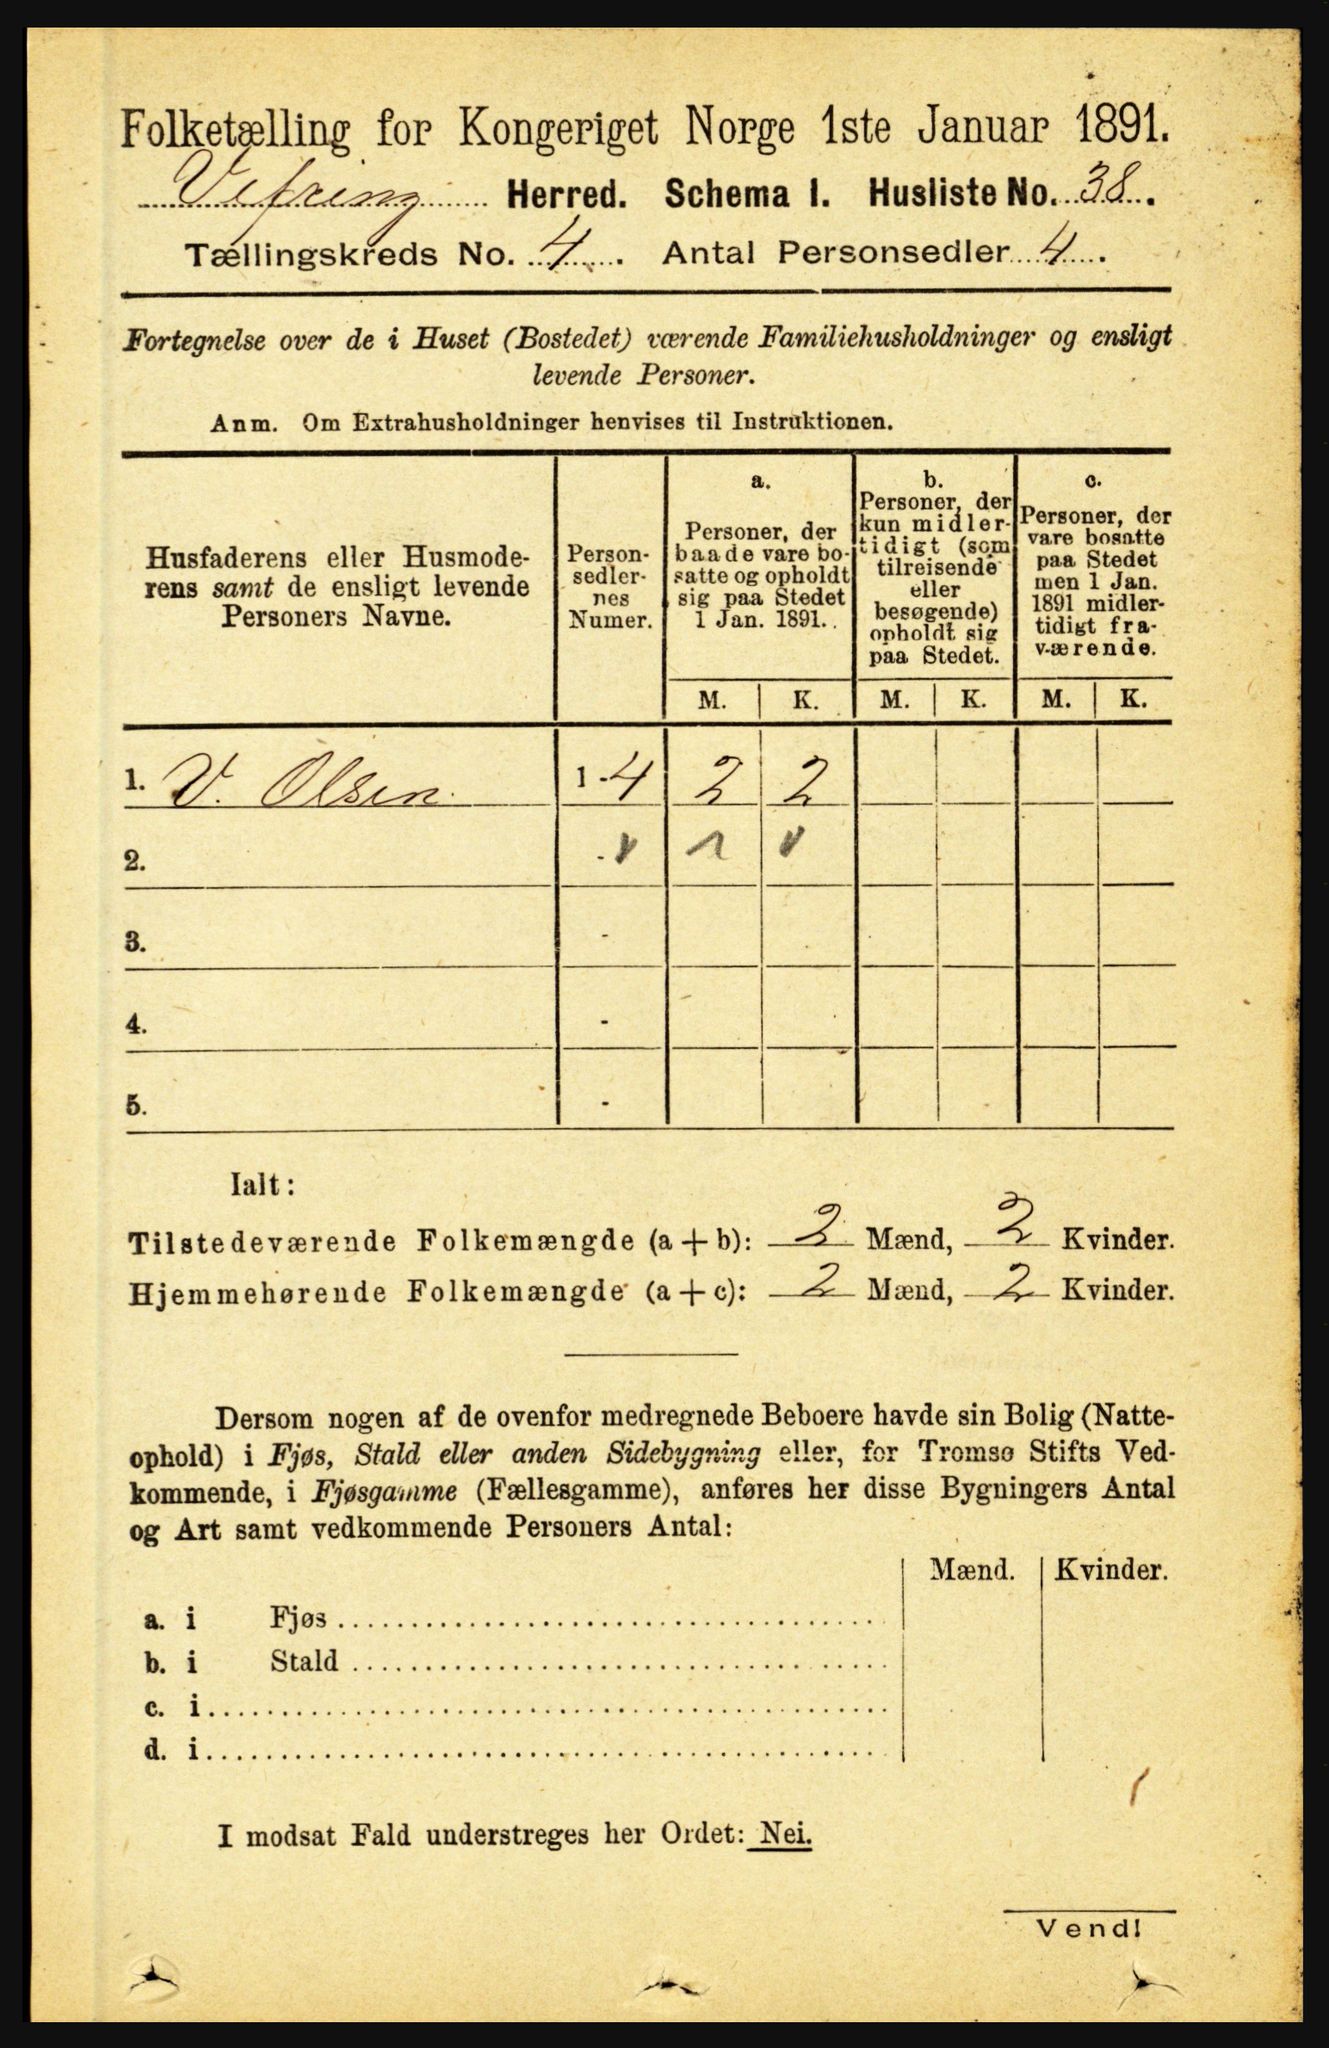 Folketælling for Kongeriget Norge 1ste Januar 1891.
Vefring Herred. Schema I. Husliste No. 38.
Tællingskreds No. 4. Antal Personsedler 4.
Fortegnelse over de i Huset (Bostedet) værende Familiehusholdninger og ensligt
levende Personer.
Anm. Om Extrahusholdninger henvises til Instruktionen.
Husfaderens eller Husmode-
rens samt de ensligt levende
Personers Navne.
Person-
sedler-
nes
Numer.
a.
Personer, der
baade vare bo-
satte og opholdt
sig paa Stedet
1 Jan. 1891.
b.
Personer, der
kun midler-
tidigt (som
tilreisende
eller
besøgende)
opholdt sig
paa Stedet.
c.
Personer, der
vare bosatte
paa Stedet
men 1 Jan.
1891 midler-
tidigt fra-
værende.
M. K. M. K. M. K.
1. V. Olsen. 1-4 2 2
2. -
3. -
4. -
5. -
Ialt:
Tilstedeværende Folkemængde (a + b): 2 Mænd, 2 Kvinder.
Hjemmehørende Folkemængde (a + c): 2 Mænd, 2 Kvinder.
Dersom nogen af de ovenfor medregnede Beboere havde sin Bolig (Natte-
ophold) i Fjøs, Stald eller anden Sidebygning eller, for Tromsø Stifts Ved-
kommende, i Fjøsgamme (Fællesgamme), anføres her disse Bygningers Antal
og Art samt vedkommende Personers Antal:
Mænd. Kvinder.
a. i Fjøs
b. i Stald
c. i
d. i
I modsat Fald understreges her Ordet: Nei.
Vend!